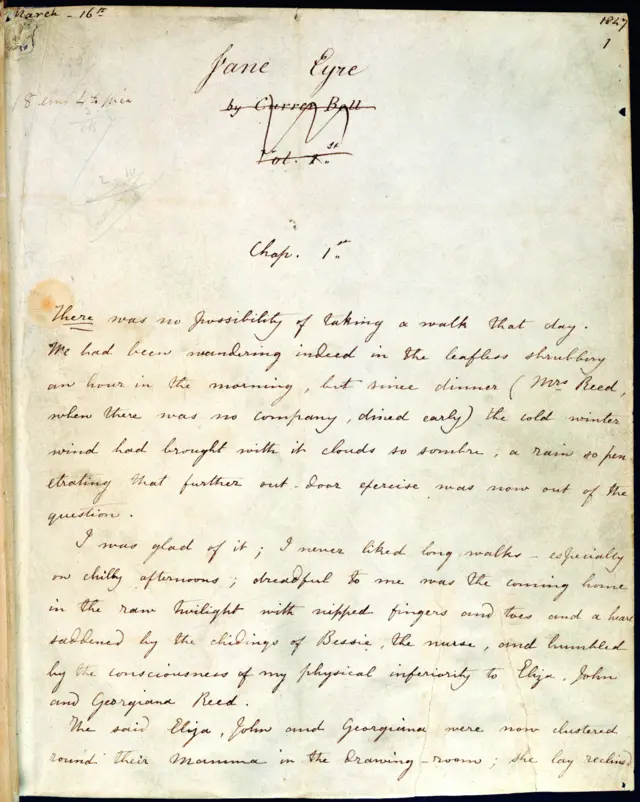 March - 16th
1847
1
Jane Eyre
by Currer Bell
Vol. 1.st
Chap. 1st.
There was no possibility of taking a walk that day.
We had been wandering indeed in the leafless shrubbery
an hour in the morning, but since dinner (Mrs Reed,
when there was no company, dined early) the cold winter
wind had brought with it clouds so sombre, a rain so pen
etrating that further out-door exercise was now out of the
question.
I was glad of it; I never liked long walks - especially
on chilly afternoons; dreadful to me was the coming home
in the raw twilight with nipped fingers and toes and a heart
saddened by the chidings of Bessie, the nurse, and humbled
by the consciousness of my physical inferiority to Eliza, John
and Georgiana Reed.
The said Eliza, John and Georgiana were now clustered
round their Mamma in the drawing-room; she lay reclined